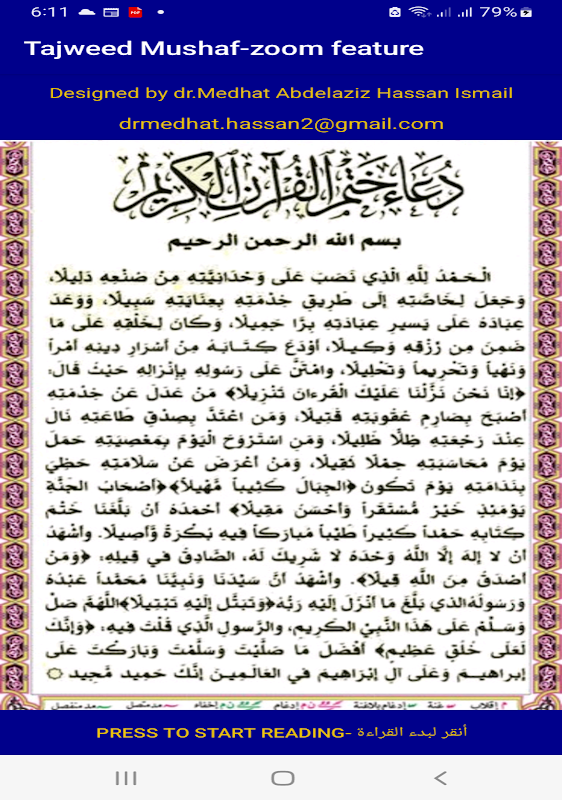 6:11
79%
Tajweed Mushaf-zoom feature
Designed by dr.Medhat Abdelaziz Hassan Ismail
drmedhat.hassan2@gmail.com
دُعَاءُ خَتْمِ الْقُرْآنِ الْكَرِيمِ
بسم الله الرحمن الرحيم
الْحَمْدُ لِلَّهِ الَّذِي نَصَبَ عَلَى وَحْدَانِيَّتِهِ مِنْ صُنْعِهِ دَلِيلًا،
وَجَعَلَ لِخَاصَّتِهِ إِلَى طَرِيقِ خِدْمَتِهِ بِعِنَايَتِهِ سَبِيلًا، وَوَعَدَ
عِبَادَهُ عَلَى يَسِيرِ عِبَادَتِهِ بِرًّا جَمِيلًا، وَكَانَ لِخَلْقِهِ عَلَى مَا
ضَمِنَ مِن رِّزْقِهِ وَكِيلًا، أَوْدَعَ كِتَابَهُ مِنْ أَسْرَارِ دِينِهِ أَمْراً
وَنَهْياً وَتَحْرِيماً وَتَحْلِيلًا، وَامْتَنَّ عَلَى رَسُولِهِ بِإِنْزَالِهِ حَيْثُ قَالَ:
﴿إِنَّا نَحْنُ نَزَّلْنَا عَلَيْكَ الْقُرْءَانَ تَنْزِيلًا﴾ مَنْ عَدَلَ عَنْ خِدْمَتِهِ
أَصْبَحَ بِصَارِمِ عُقُوبَتِهِ قَتِيلًا، وَمَنِ اعْتَدَّ بِصِدْقِ طَاعَتِهِ نَالَ
عِنْدَ رَجْعَتِهِ ظِلًّا ظَلِيلًا، وَمَنِ اسْتَرْوَحَ الْيَوْمَ بِمَعْصِيَتِهِ حَمَلَ
يَوْمَ مُحَاسَبَتِهِ حِمْلًا ثَقِيلًا، وَمَنْ أَعْرَضَ عَنْ سَلَامَتِهِ حَظِيَ
بِنَدَامَتِهِ يَوْمَ تَكُونُ ﴿الْجِبَالُ كَثِيباً مَّهِيلاً﴾ ﴿أَصْحَابُ الْجَنَّةِ
يَوْمَئِذٍ خَيْرٌ مُّسْتَقَرّاً وَأَحْسَنُ مَقِيلًا﴾ أَحْمَدُهُ أَنْ بَلَّغَنَا خَتْمَ
كِتَابِهِ حَمْداً كَثِيراً طَيِّباً مُبَارَكاً فِيهِ بُكْرَةً وَّأَصِيلًا. وَأَشْهَدُ
أَنْ لَا إِلَهَ إِلَّا اللَّهُ وَحْدَهُ لَا شَرِيكَ لَهُ، الصَّادِقُ فِي قِيلِهِ: ﴿وَمَنْ
أَصْدَقُ مِنَ اللَّهِ قِيلًا﴾. وَأَشْهَدُ أَنَّ سَيِّدَنَا وَنَبِيَّنَا مُحَمَّداً عَبْدُهُ
وَرَسُولُهُ الَّذِي بَلَّغَ مَا أَنْزَلَ إِلَيْهِ رَبُّهُ ﴿وَتَبَتَّلْ إِلَيْهِ تَبْتِيلًا﴾ اللَّهُمَّ صَلِّ
وَسَلِّمْ عَلَى هَذَا النَّبِيِّ الْكَرِيمِ، وَالرَّسُولِ الَّذِي قُلْتَ فِيهِ: ﴿وَإِنَّكَ
لَعَلَى خُلُقٍ عَظِيمٍ﴾ أَفْضَلَ مَا صَلَّيْتَ وَسَلَّمْتَ وَبَارَكْتَ عَلَى
إِبْرَاهِيمَ وَعَلَى آلِ إِبْرَاهِيمَ فِي الْعَالَمِينَ إِنَّكَ حَمِيدٌ مَّجِيدٌ
م إقلاب غنة إدغام بلاغنة إدغام إخفاء مد متصل مد منفصل
PRESS TO START READING- أنقر لبدء القراءة